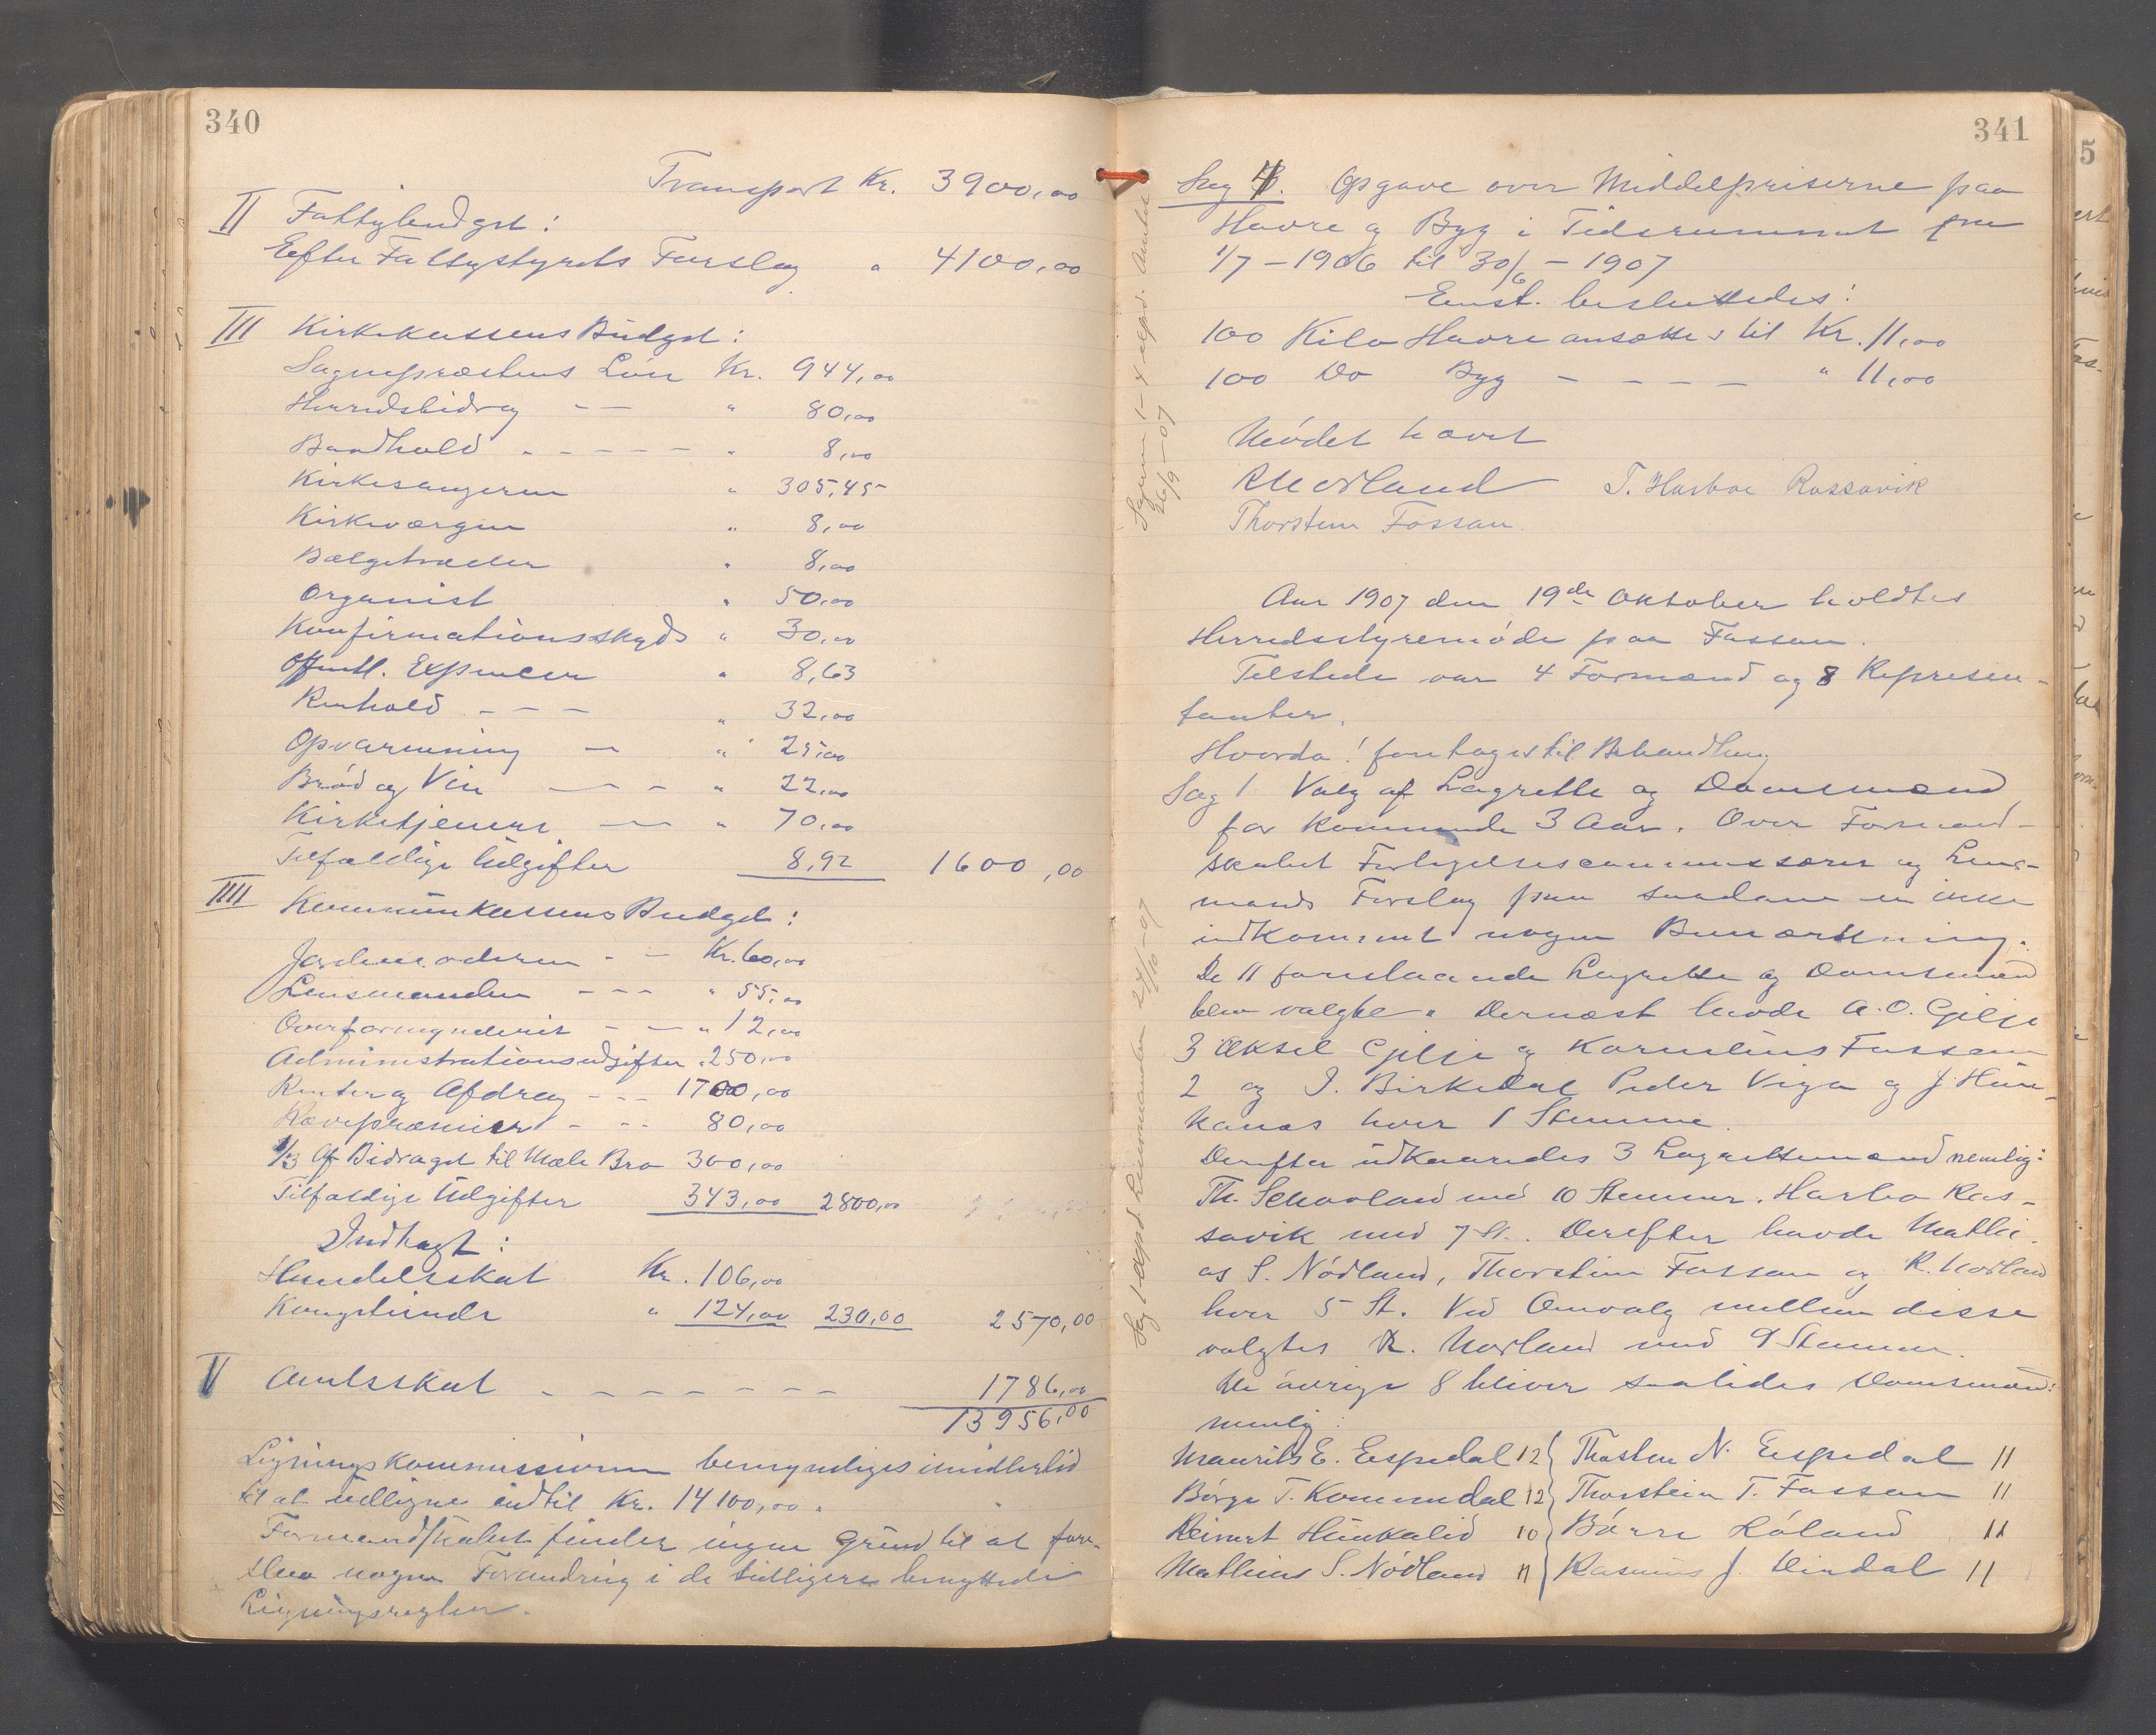 340
Transport Kr. 3900,00
II Fattigbudget:
Efter Fattigstyrets Forslag " 4100,00
III Kirkekassens Budget:
Sognepræstens Lön Kr. 944,00
Herredsbidrag — — " 80,00
Baadhold - - - - - " 8,00
Kirkesangeren " 305,45
Kirkeværgen " 8,00
Bælgetræder " 8,00
Organist " 50,00
Konfirmationsskyds " 30,00
Offentl. Expencer " 8,63
Renhold - - - " 32,00
Opvarmning — " 25,00
Bröd og Vin — - - " 22,00
Kirketjenere — " 70,00
Tilfældige Udgifter 8,92 1600,00
IIII Kommunkassens Budget:
Jordemoderen - - Kr. 60,00
Lensmanden - - - " 55,00
Overformynderiet - - " 12,00
Administrationsudgifter " 250,00
Renter og Afdrag - - - 1700,00
Rævepræmier - - - 80,00
1/3 Af Bidraget til Mæle Bro 300,00
Tilfældige Udgifter 343,00 2800,00
Indtægt:
Handelsskat Kr. 106,00
Kongetiende " 124,00 230,00 2570,00
V Amtsskat - - - - - - - 1786,00
13956,00
Ligningskommissionen bemyndiges imidlertid
til at udligne indtil Kr. 14100,00.
Formandskabet finder ingen Grund til at fore-
slaa nogen Forandring i de tidligere benyttede
Ligningsregler.
341
Sag 4. Opgave over Middelpriserne paa
Havre og Byg i Tidsrummet fra
1/7 - 1906 til 30/6 - 1907
Enst. besluttedes:
100 Kilo Havre ansættes til Kr. 11,00
100 Do Byg - - - - " 11,00
Mödet hævet
R Norland T. Harboe Rossavik
Thorstein Fossan.
Sagerne 1-4 exped. Amtet
26/9-07
Aar 1907 den 19de Oktober holdtes
Herredsstyremöde paa Fossan.
Tilstede var 4 Formænd og 8 Represen-
tanter.
Hvorda! foretages til Behandling
Sag 1 Valg af Lagrette og Domsmænd
for kommende 3 Aar. Over Formand-
skabet Forligelsescommissærer og Lens-
mands Forslag paa saadanne er ikke
indkommet nogen Bemærkning.
De 11 foreslaaende Lagrette og Domsmænd
blev valgte. Dernæst havde A. O. Gilje
3 Aksel Gilje og Kornelius Fossan
2 og I. Birkedal Peder Viga og J. Hun-
kanæs hver 1 Stemme.
Derefter udkaaredes 3 Lagrettemænd nemlig:
Th. Schooland med 10 Stemmer. Harbo Ros-
savik med 7 St. Derefter havde Mathi-
as S. Nödland, Thorstein Fossan og R. Norland
hver 5 St. Ved Omvalg mellem disse
valgtes R. Norland med 9 Stemmer.
De övrige 8 bliver saaledes Domsmænd:
nemlig:
Maurits E. Espedal 12 } Thosten N. Espedal 11
Börge T. Kommedal 12 } Thorstein T. Fossan 11
Reinert Hunkalid 10 } Börre Röland 11
Mathias S. Nödland 11 } Rasmus J. Dirdal 11
Sag 1 exped. Lensmanden 24/10-07
5